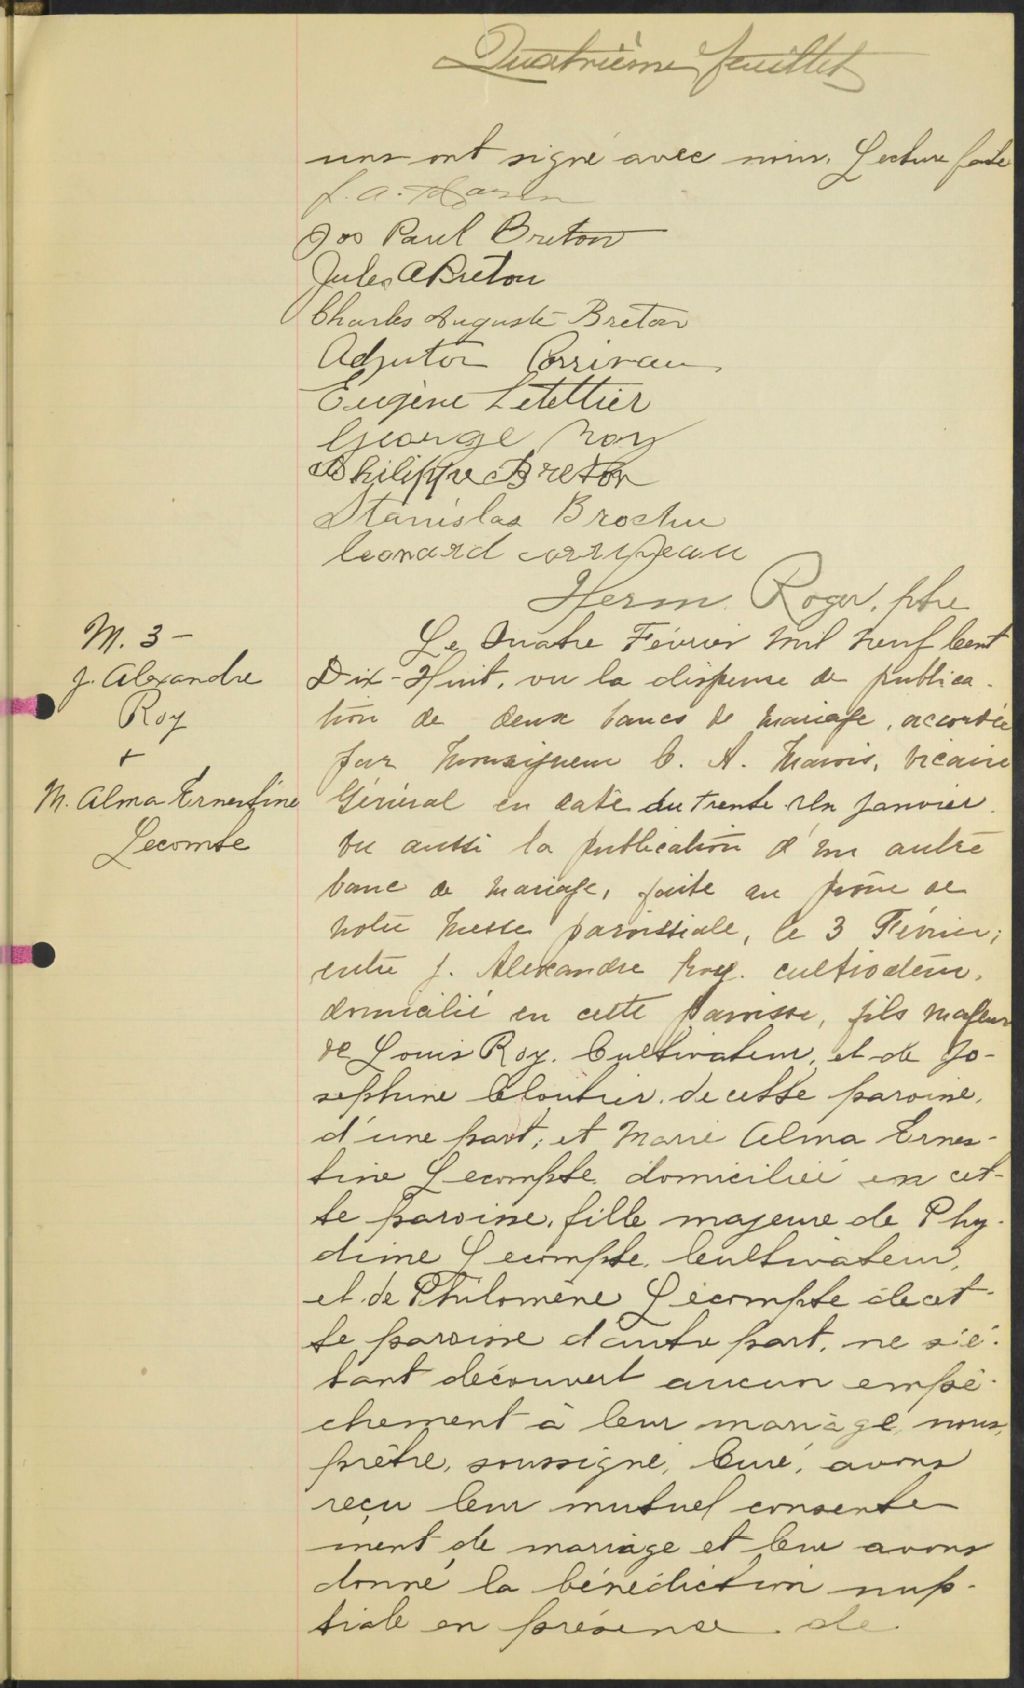 Quatrième feuillet
uns ont signé avec nous. Lecture faite
J. A.
Jos Paul Breton
Jules A Breton
Charles Auguste Breton
Adjutor Corrivau
Eugène Letellier
George Roy
Philippe Breton
Stanislas Brochu
Leonard corriveau
Herm. Roger, ptre
M. 3 -
J. Alexandre
Roy
+
M. Alma Ernestine
Lecomte
Le Quatre Février mil neuf cent
Dix-Huit, vu la dispense de publica-
tion de deux bancs de mariage, accordée
par Monseigneur C. A. Marois, Vicaire
Général en date du trente Un Janvier.
Vu aussi la publication d'un autre
banc de mariage, faite au prône de
notre messe paroissiale, le 3 Février;
entre J. Alexandre Roy. cultivateur,
domicilié en cette paroisse, fils majeur
de Louis Roy. Cultivateur, et de Jo-
sephine Cloutier. de cette paroisse,
d'une part; et Marie Alma Ernes-
tine Lecompte domiciliée en cet-
te paroisse, fille majeure de Phy-
dime Lecompte, Cultivateur,
et de Philomène Lecompte de cet-
te paroisse d'autre part, ne s'é-
tant découvert aucun empê-
chement à leur mariage, nous,
prêtre, soussigné, Curé, avons
reçu leur mutuel consente
ment de mariage et leur avons
donné la bénédiction nup-
tiale en présence de